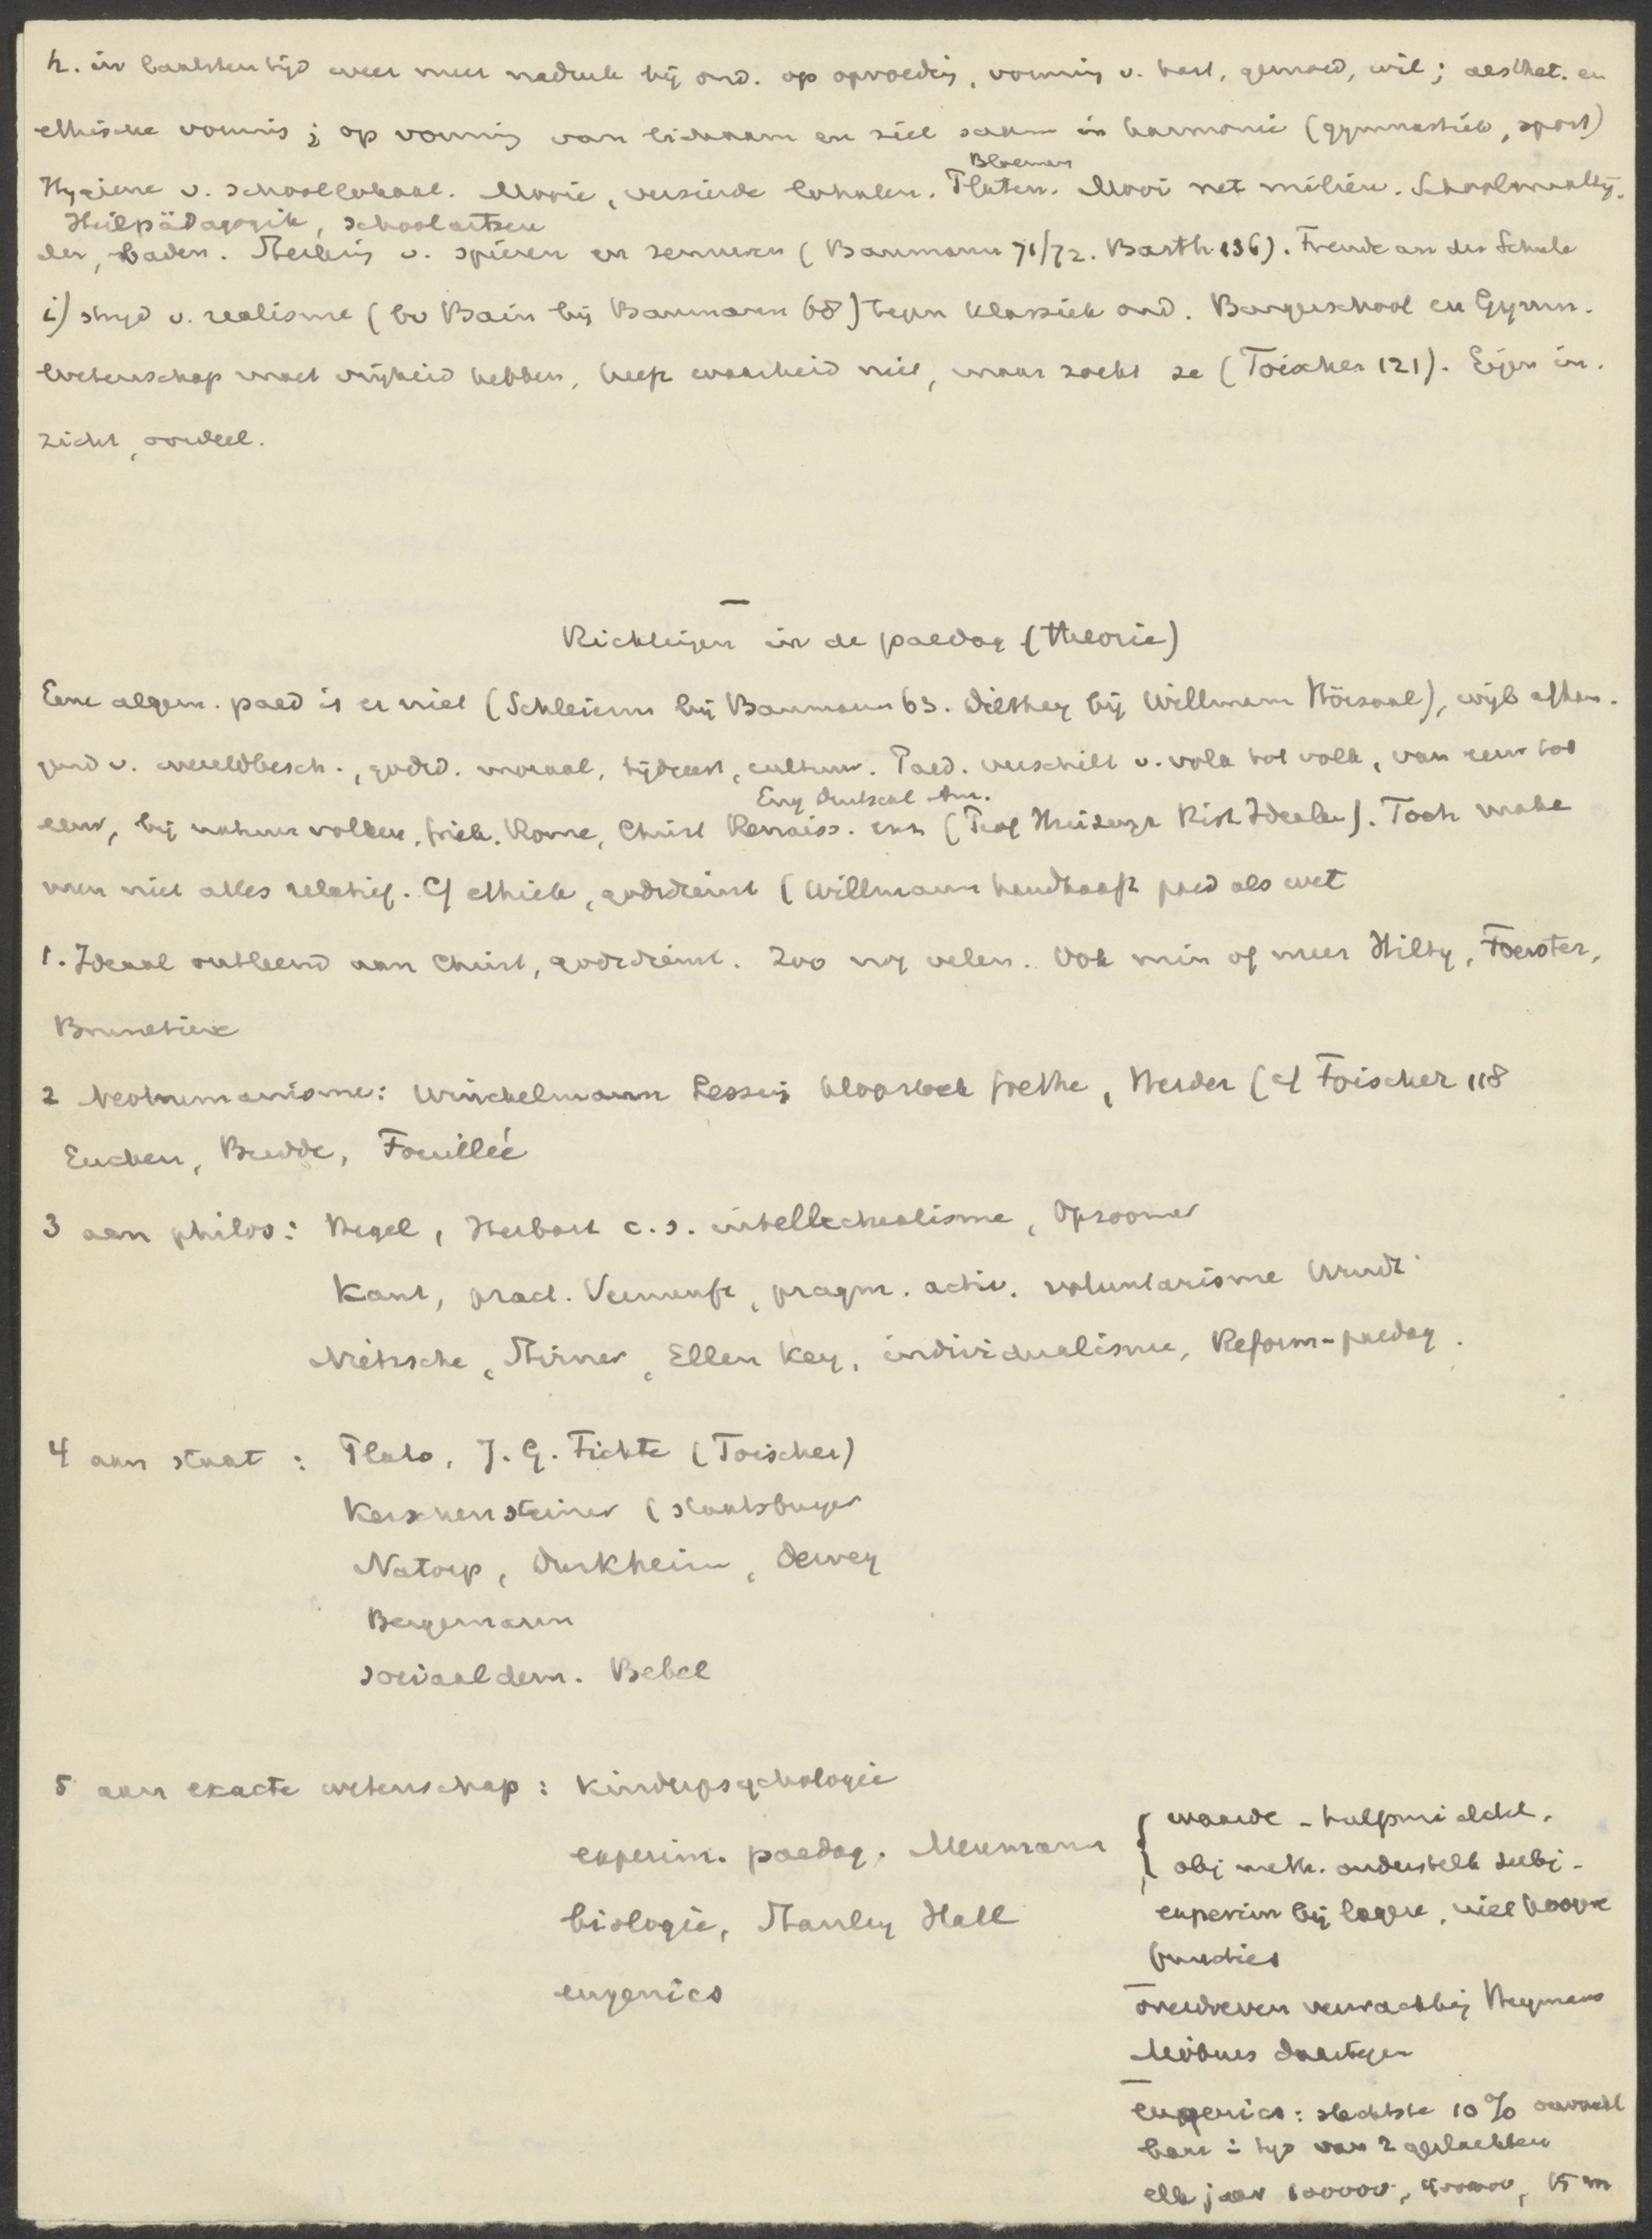 h. in laatsten tijd weer meer nadruk bij ond. op opvoeding, vorming v. hart, gemoed, wil; aesthet. en
ethische vorming; op vorming van lichaam en ziel saam in harmonie (gymnastiek, sport)
Bloemen
Hygiene v. schoollokaal. Mooie, versierde lokalen. Platen. Mooi net milieu. Schoolmaaltij-
Heilpädagogik, schoolartsen
den, baden. Sterking v. spieren en zenuwen (Baumann 71/72. Barth 136). Freude an der Schule
i) strijd v. realisme (bv Bain bij Baumann 68) tegen klassiek ond. Burgerschool en Gymn.
Wetenschap moet vrijheid hebben, heeft waarheid niet, maar zoekt ze (Toischer 121). Eigen in-
zicht, oordeel.
Richtingen in de paedag (theorie)
Eene algem. paed is er niet (Schleierm bij Baumann 63. Dilthey bij Willmann Hörsaal), wijl afhan-
gend v. wereldbesch., godsd. moraal, tijdgeest, cultuur. Paed. verschilt v. volk tot volk, van eeuw tot
Eng Duitschl Am.
eeuw, bij natuurvolken, Griek. Rome, Christ Renaiss. enz (Prof Huizinga Rid Idealen). Toch make
men niet alles relatief. Cf ethiek, godsdienst (Willmann handhaaft paed als wet
1. Ideaal ontleend aan Christ, godsdienst. Zoo nog velen. Ook min of meer Hilty, Foerster,
Brunetière
2 Neohumanisme: Winckelmann Lessing Klopstock Goethe, Herder (cf Toischer 118
Eucken, Budde, Fouillée
3 aan philos: Hegel, Herbart c.s. intellectualisme, Opzoomer
Kant, pract. Vernunft, pragm. activ. voluntarisme Wundt
Nietzsche, Stirner, Ellen Key, individualisme, Reform-paedag.
4 aan staat: Plato, J. G. Fichte (Toischer)
Kerschensteiner (staatsburger
Natorp, Durkheim, Dewey
Bergemann
sociaaldem. Bebel
5 aan exacte wetenschap: kinderpsychologie
experim. paedag. Meumann
biologie, Stanley Hall
eugenics
waarde - hulpmiddel.
obj meth. onderstelt subj-
experim bij lagere, niet hoogere
functies
overdreven verwachting Heymans
Möbius daartegen
eugenics: slechtste 10%
in tijd van 2 geslachten
elk jaar 100000,